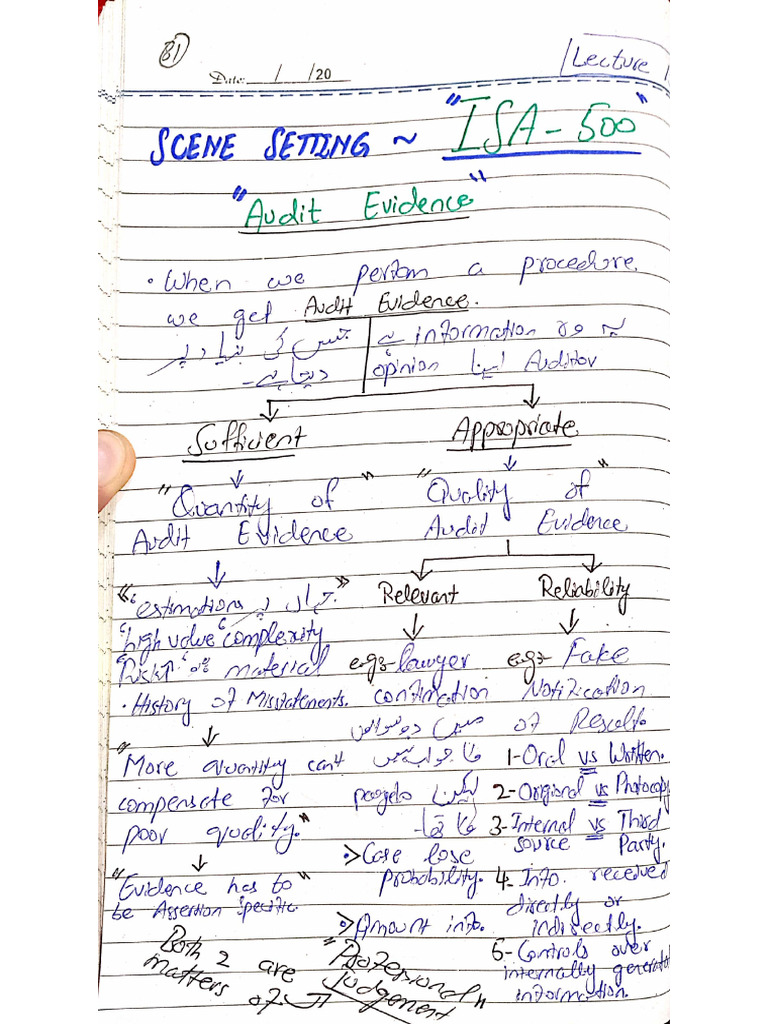 81
Date: __/__/20
Lecture 1
SCENE SETTING ~ "ISA-500"
"Audit Evidence"
• When we perform a procedure
we get Audit Evidence.
یہ وہ information ہے جس کی بنیاد پر
Auditor اپنا opinion دیتا ہے۔
Sufficient
"Quantity of
Audit Evidence"
"estimations جہاں پر"
high value complexity
Risk of material
• History of Misstatements.
"More quantity can't
compensate for
poor quality."
"Evidence has to
be Assertion Specific"
Appropriate
"Quality of"
Audit Evidence
Relevant
e.g:- lawyer
confirmation
میں دو سوالوں
کا جواب
لیکن
> Case lose
probability.
> Amount info.
Reliability
e.g:- Fake
Notification
of Result.
1- Oral vs Written.
2- Orignal vs Photocopy
3- Internal vs Third
source Party.
4- Info. received
directly or
indirectly.
6- Controls over
internally generated
information.
Both 2 are "Professional
matters of Judgement"